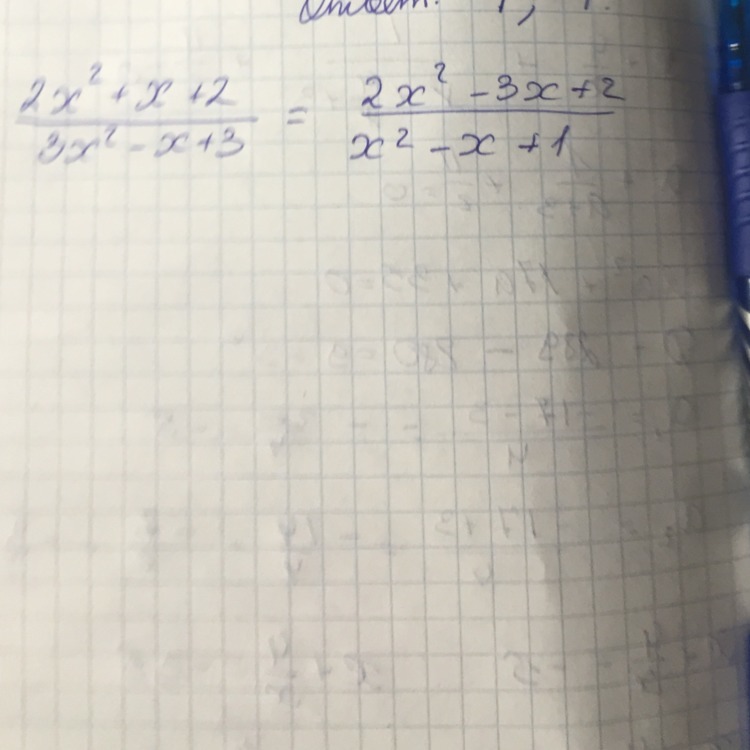 Ответ:
2x² + x + 2 / 3x² - x + 3 = 2x² - 3x + 2 / x² - x + 1